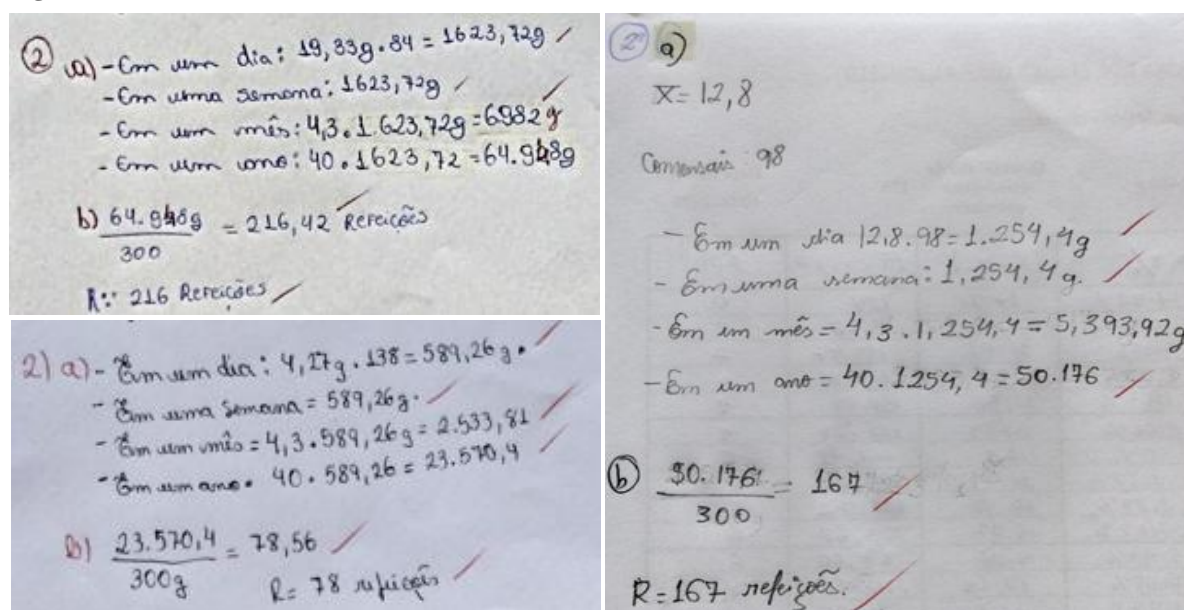 2 a) - Em um dia: 19,33g . 84 = 1623,72g
- Em uma semana: 1623,72g
- Em um mês: 4,3 . 1.623,72g = 6982g
- Em um ano: 40 . 1623,72 = 64.948g
b) 64.948g = 216,42 Refeições
300
R: 216 Refeições
2) a) - Em um dia: 4,27g . 138 = 589,26g.
- Em uma semana = 589,26g.
- Em um mês = 4,3 . 589,26g = 2.533,81
- Em um ano. 40 . 589,26 = 23.570,4
b) 23.570,4 = 78,56
300g
R = 78 refeições
2 a)
X = 12,8
Comensais: 98
- Em um dia 12,8 . 98 = 1.254,4g
- Em uma semana: 1,254,4g.
- Em um mês = 4,3 . 1,254,4 = 5,393,92g
- Em um ano = 40 . 1254,4 = 50.176
b 50.176 = 167
300
R = 167 refeições.